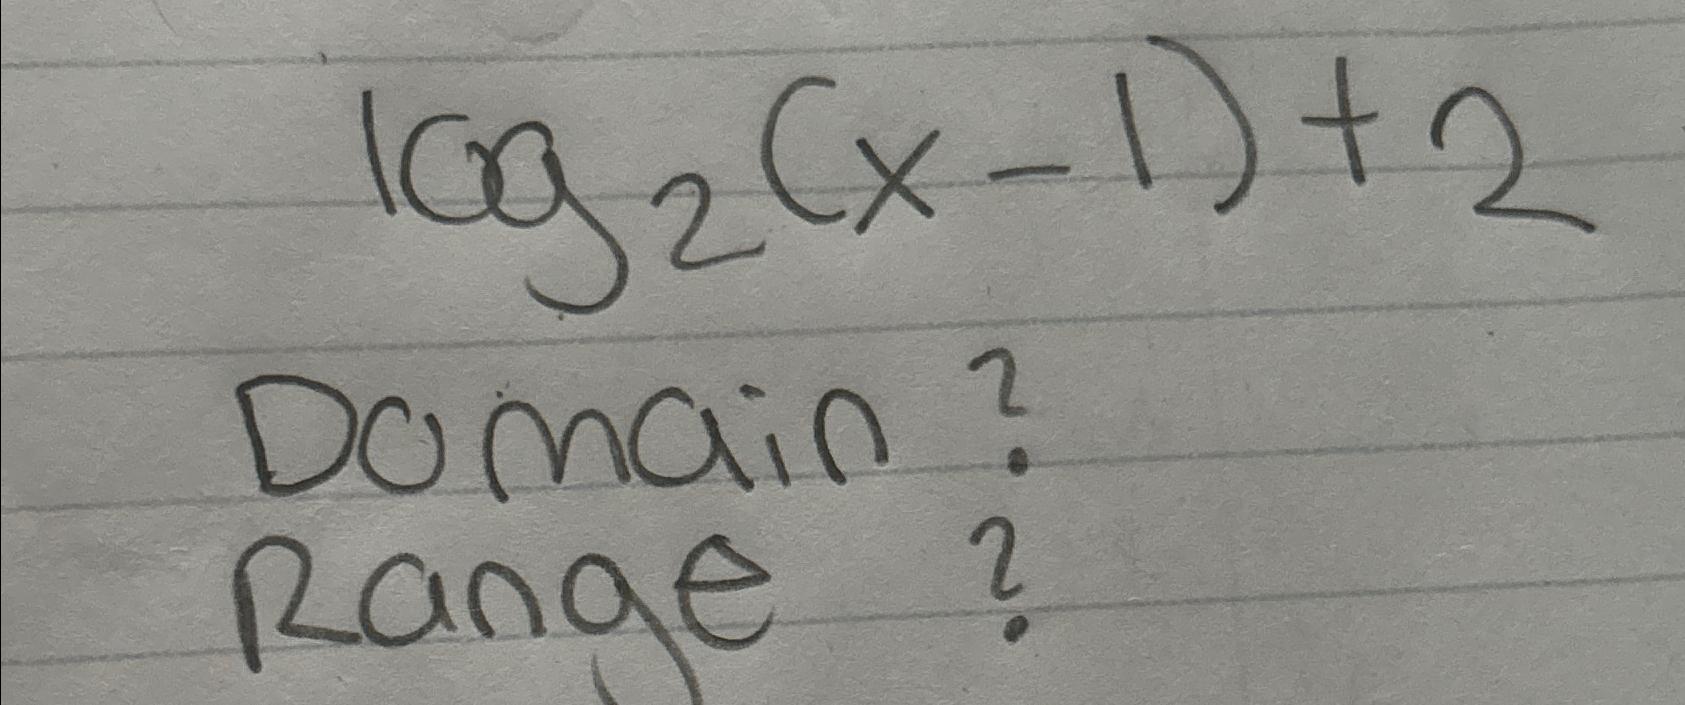 log₂(x-1)+2
Domain ?
Range ?